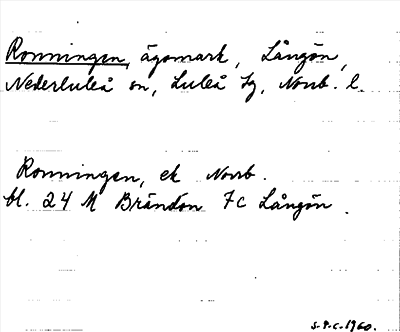 Ronningen, ägomark, Långön,
Nederluleå sn, Luleå tg, Norrb. l.
Ronningen, ek Norrb.
bl. 24 M Brändön 7c Långön.
S.P.C. 1960.